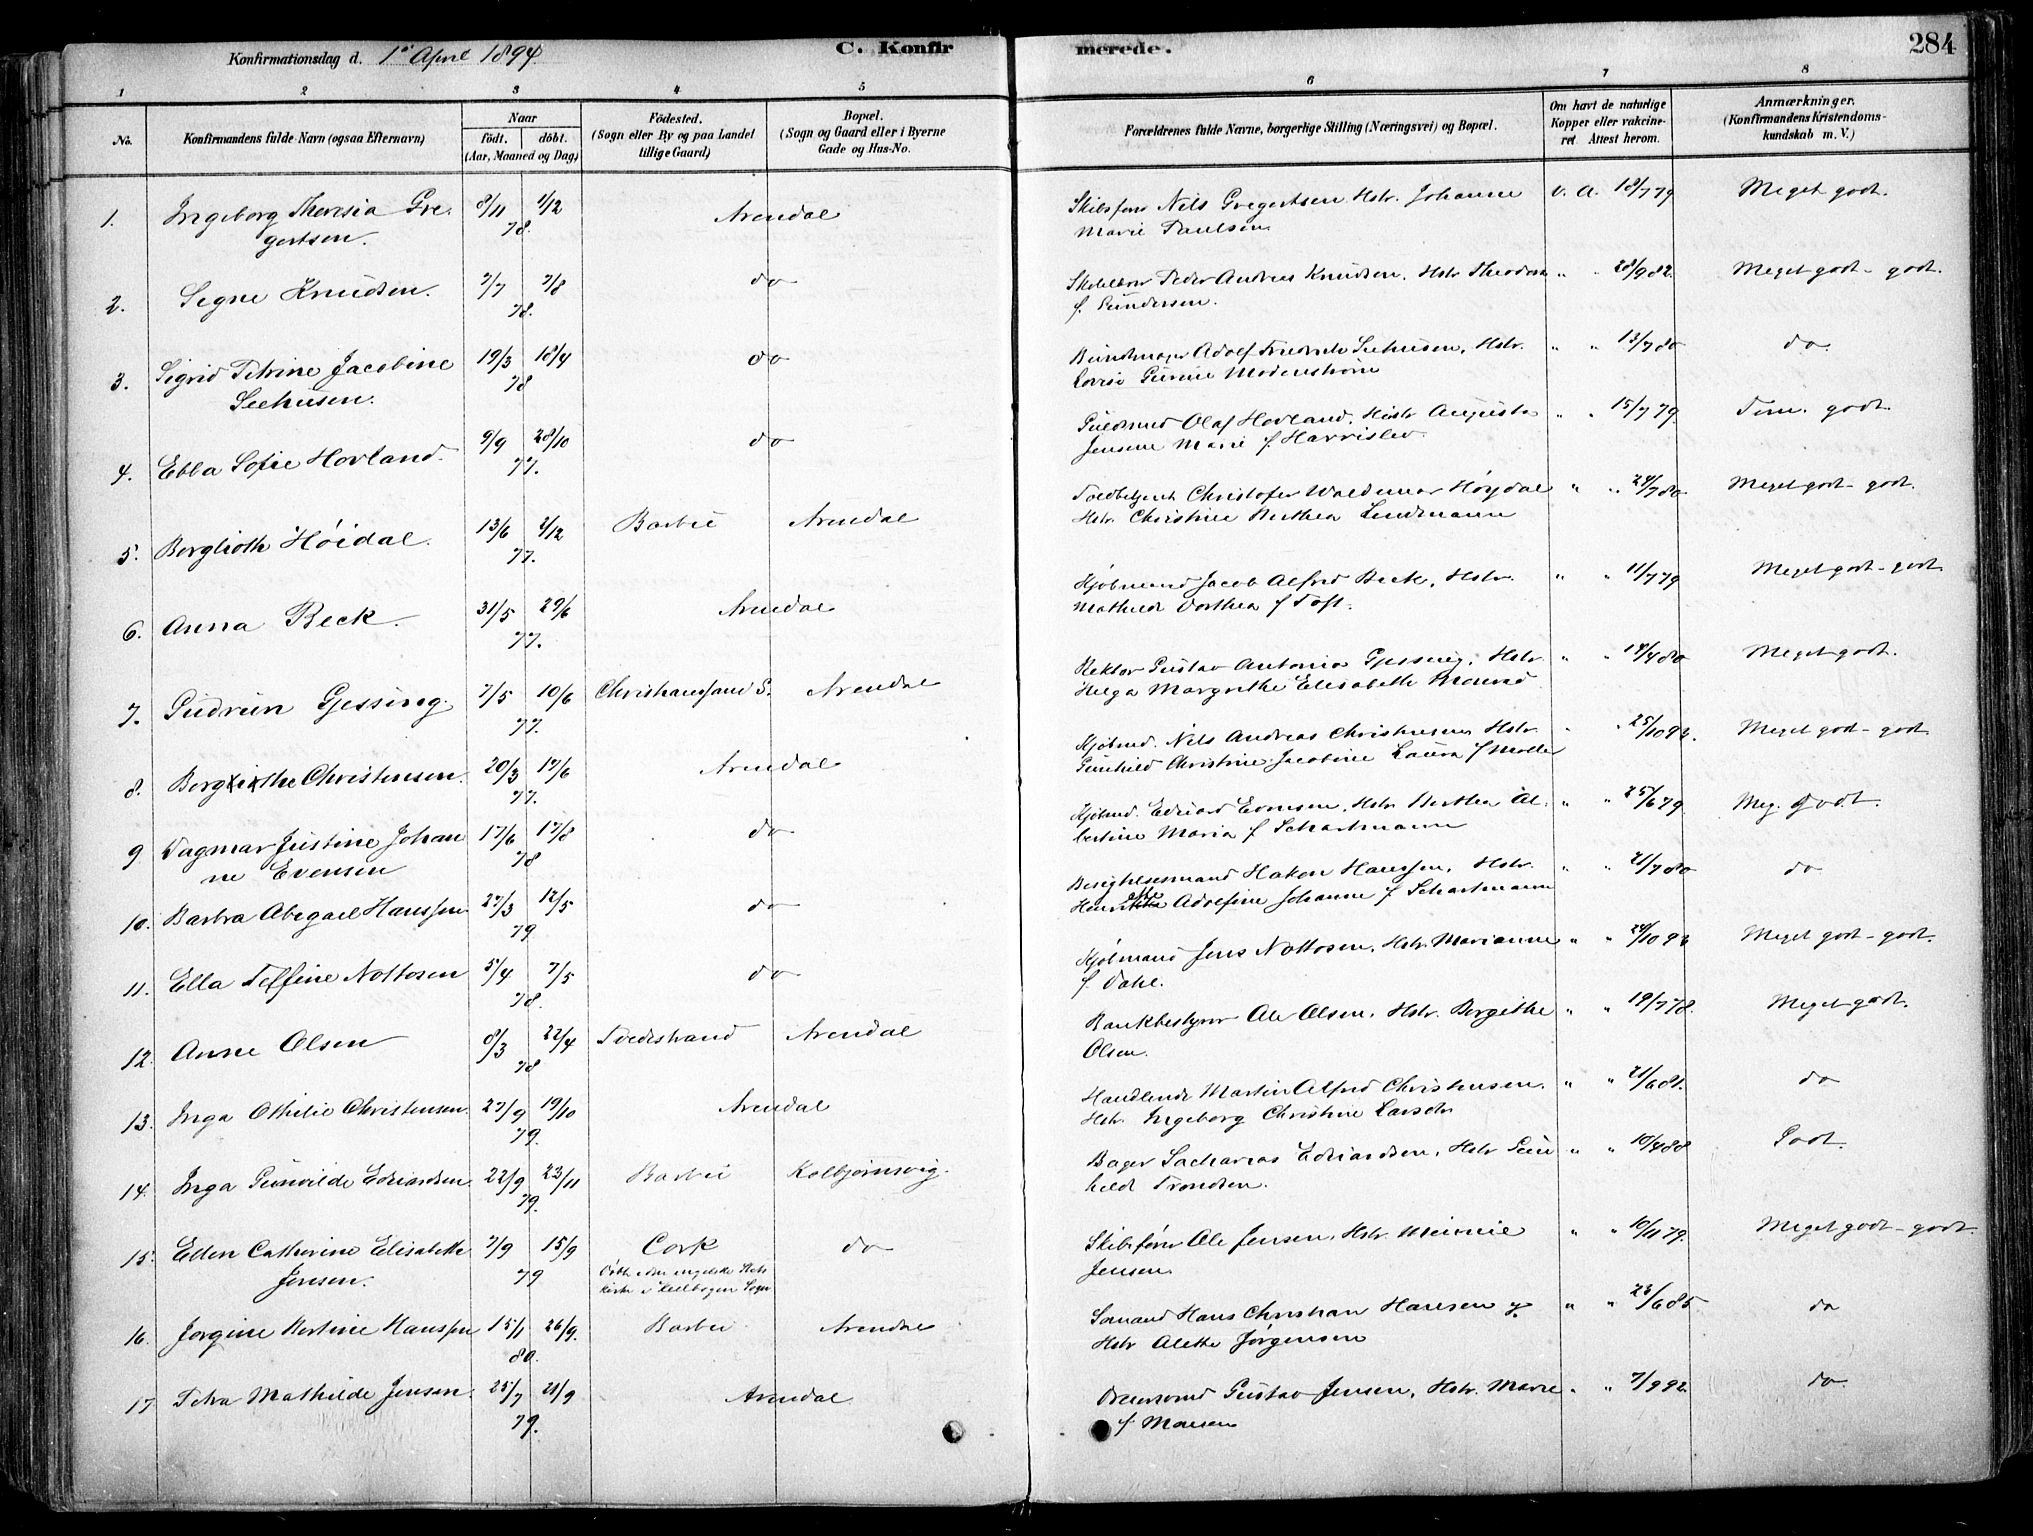 Konfirmationsdag d. 1ste April 1894. C. Konfirmerede. 284
1 2 3 4 5 6 7 8
No. Konfirmandens fulde Navn (ogsaa Efternavn) Naar født. døbt. (Aar, Maaned og Dag) Födested. (Sogn eller By og paa Landet tillige Gaard) Bopæl. (Sogn og Gaard eller i Byerne Gade og Hus-No. Forældrenes fulde Navne, borgerlige Stilling (Næringsvei) og Bopæl. Om havt de naturlige Kopper eller vakcineret. Attest herom. Anmærkninger. (Konfirmandens Kristendomskundskab m. V.)
1. Ingeborg Theresia Gre- 8/11 1/12 Arendal Skibsfører Nils Gregertsen Hstr. Johanne v. A. 18/7 79 Meget godt.
gertsen. 78. Marie Paulsen
2. Signe Knudsen. 2/7 7/8 do Peder Andreas Knudsen, Hstr Theodora " " 28/9 82. Meget godt - godt.
78. f. Gundersen.
3. Sigrid Petrine Jacobine 19/3 18/4 do Buntmager Adolf Fredrik Seehusen, Hstr. " " 13/7 80 do.
Seehusen. 78
4. Ebba Sofie Hovland. 9/9 28/10 do Guldsmed Olaf Hovland, Hstr Augusta " " 15/7 79. godt.
77. Jensine Marie f. Harrislev.
5. Borglioth Høidal. 13/6 2/12 Barbu Arendal Toldbetjent Christofer Waldemar Høydal " " 24/7 80 Meget godt - godt.
77. Hstr. Christine Berthea Lindmann
6. Anna Beck. 31/5 29/6 Arendal Kjøbmand Jacob Alfred Beck, Hstr. " " 11/7 79 Meget godt - godt
77. Mathilde Dorthea f Toft.
7. Gudrun Gjessing. 7/5 10/6 Christianssand S. Arendal Rektor Gustav Antonio Gjessing, Hstr " " 14/4 80 Meget godt.
77. Helga Margrethe Elisabeth Monrad
8. Borglithe Christensen. 20/3 17/6 Arendal Kjøbmd. Nils Andreas Christensen Hstr. " " 25/10 92. Meget godt - godt
77. Gunhild Christine Jacobine Laura f Møller
9 Dagmar Justine Johan 17/6 17/8 do Kjøbmd. Eduard Evensen, Hstr Berthea Al- " " 25/6 79. Meg. godt.
ne Evensen 78 bertine Maria f Schartmann
10. Barbra Abegael Hanssen 27/3 12/5 do Besigtelsesmand Hakon Hanssen, Hstr. " " 21/7 80 do
79 Adolfine Johanne f Schartmann
11. Ella Teffine Nottosen 5/4 7/5 do Kjøbmand Jens Nottosen, Hstr. Marianne " " Meget godt - godt.
78. f. Dahl.
12. Anne Olsen 8/3 22/4 Tvedestrand Arendal Bankbestyrer Ole Olsen, Hstr. Bergithe " " 19/7 78. Meget godt.
78 Olsen.
13. Inga Othilie Christensen. 27/9 19/10 Arendal Handlende Martin Alfred Christensen, " " 21/6 81. do
79. Hstr. Ingeborg Christine
14. Inga Gunvilde Eduardsen. 22/9 23/11 Barbu Kolbjørnsvig. Bager Sacharias Eduardsen, Hstr Gun " " 10/4 88 Godt.
79. hild Trondsen.
15. Ellen Catherine Elisabeth 7/9 15/9 Cork do Skibsfører Ole Jensen, Hstr. Minnie " " 10/11 79. Meget godt - godt.
Jensen. 79 Døbt i den engelske Stats Jensen
kirke i Sogn
16. Jørgine Bertine Hanssen 15/1 26/9. Barbu Arendal Sømand Hans Christian Hansen og " " 23/6 85. do
80. Hstr Alethe Jørgensen
17 Petra Mathilde Jensen. 25/7 21/9 Arendal Gustav Jensen, Hstr. Marie " " 7/9 92. do.
79. f